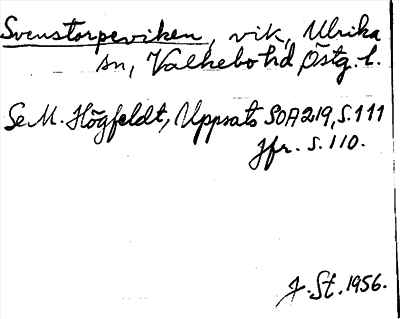 Svenstorpeviken, vik, Ulrika
sn, Valkebo hd, Östg. l.
Se M. Högfeldt, Uppsats SOA 219, S. 111
Jfr. S. 110.
J. St. 1956.